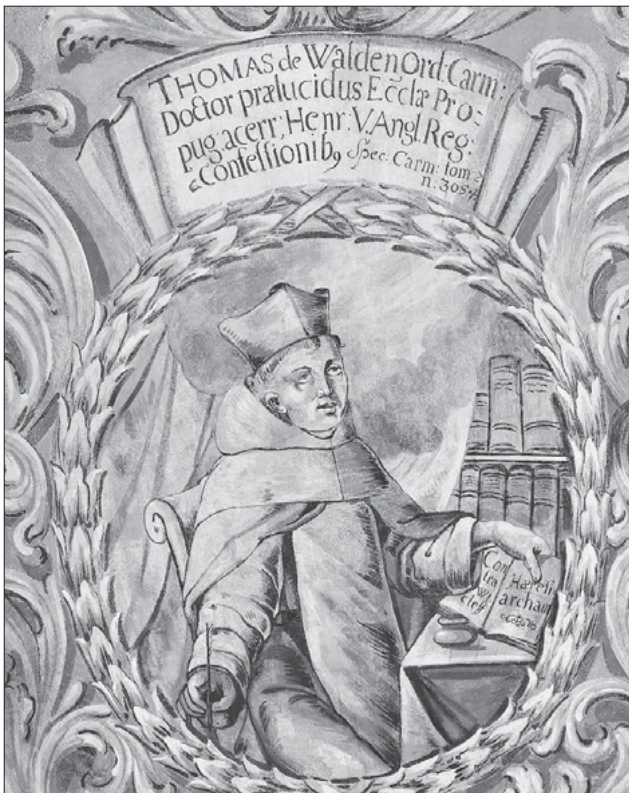 THOMAS de Walden Ord: Carm:
Doctor prælucidus Eccłæ Pro:
pug: acerr: Henr: V. Angl. Reg:
a Confessionib9 Spec: Carm: tom: 2
n: 3054
Con
tra
W
cleff
Hæresi
archam